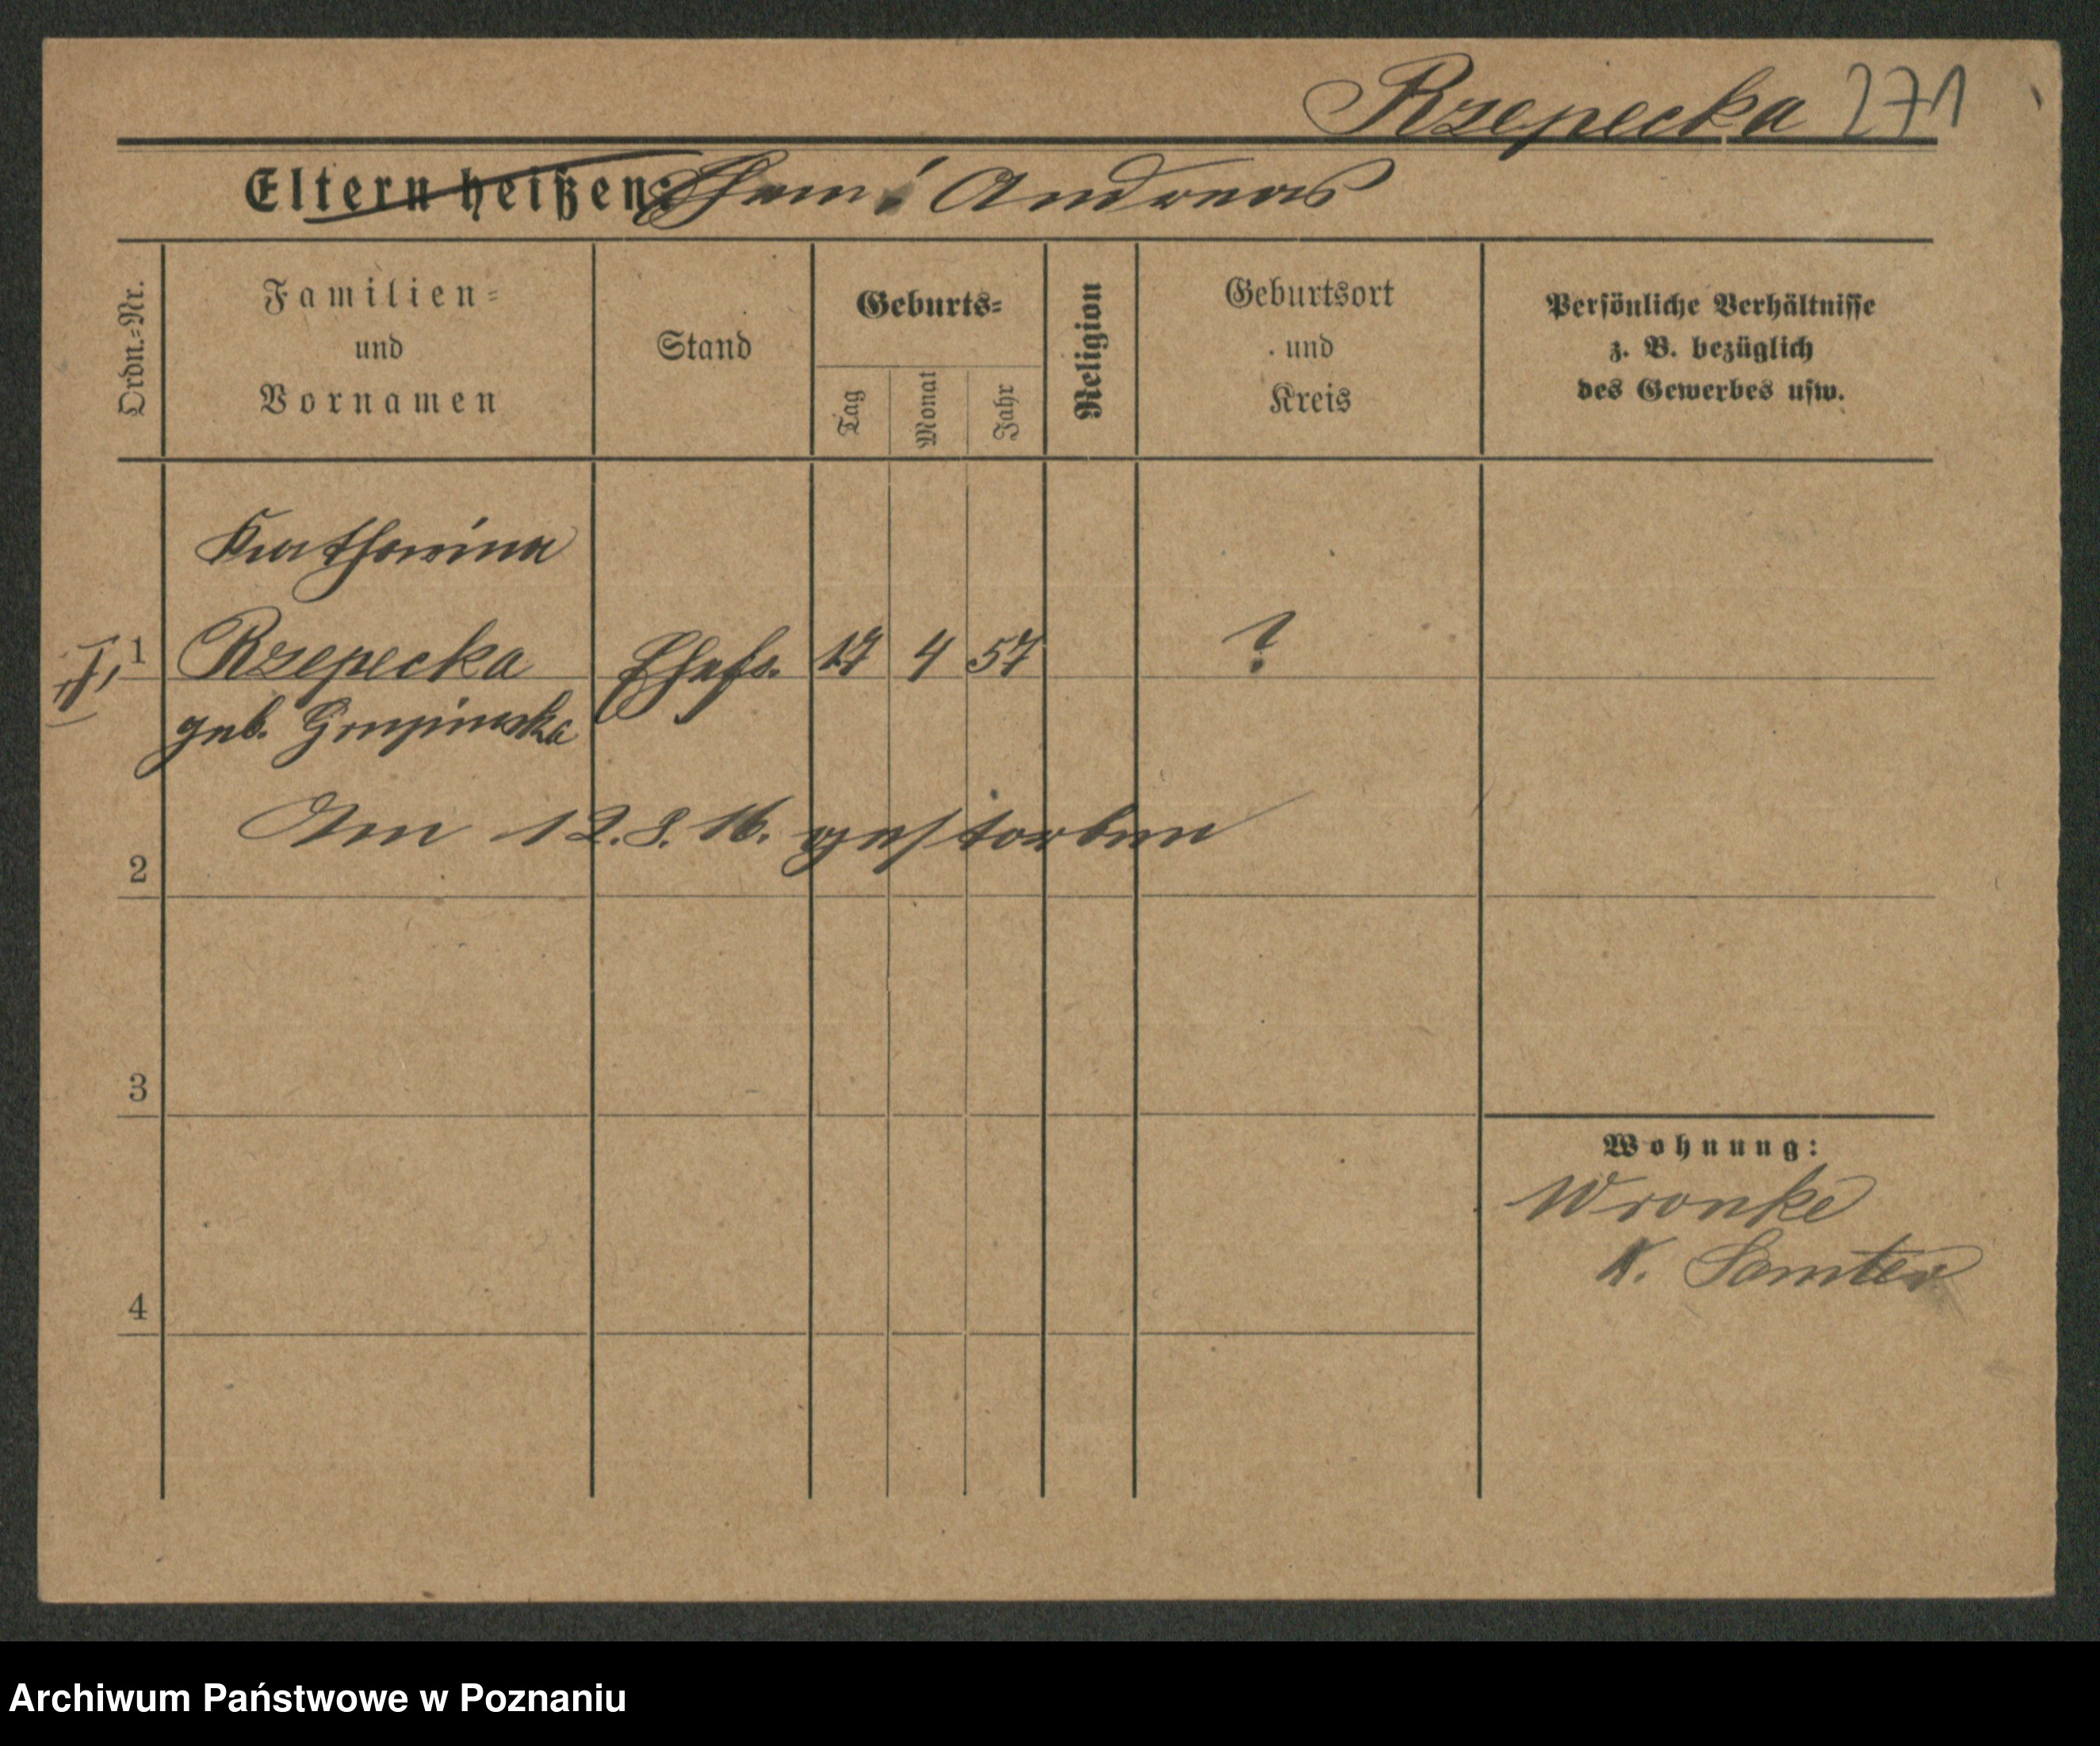 Rzepecka 271
Eltern heißen: Ehem: Andreas
Ordn.=Nr.
Familien=
und
Vornamen
Stand
Geburts=
Tag
Monat
Jahr
Religion
Geburtsort
und
Kreis
Persönliche Verhältnisse
z. B. bezüglich
des Gewerbes usw.
Katharina
1 Rzepecka Ehefr. 17 4 57 ?
geb.
Am 12. 8. 16. gestorben
2
3
Wohnung:
Wronke
K. Samter
4
Archiwum Państwowe w Poznaniu